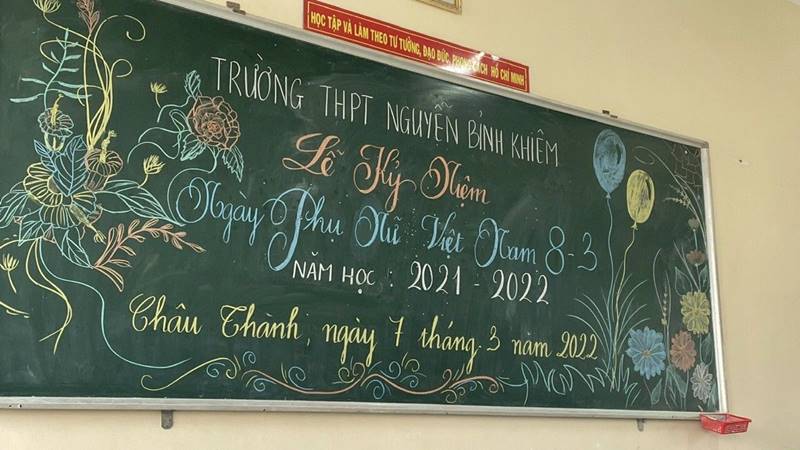 HỌC TẬP VÀ LÀM THEO TƯ TƯỞNG, ĐẠO ĐỨC, PHONG CÁCH HỒ CHÍ MINH
TRƯỜNG THPT NGUYỄN BỈNH KHIÊM
Lễ Kỷ Niệm
Ngày Phụ Nữ Việt Nam 8-3
NĂM HỌC : 2021 - 2022
Châu Thành, ngày 7 tháng 3 năm 2022